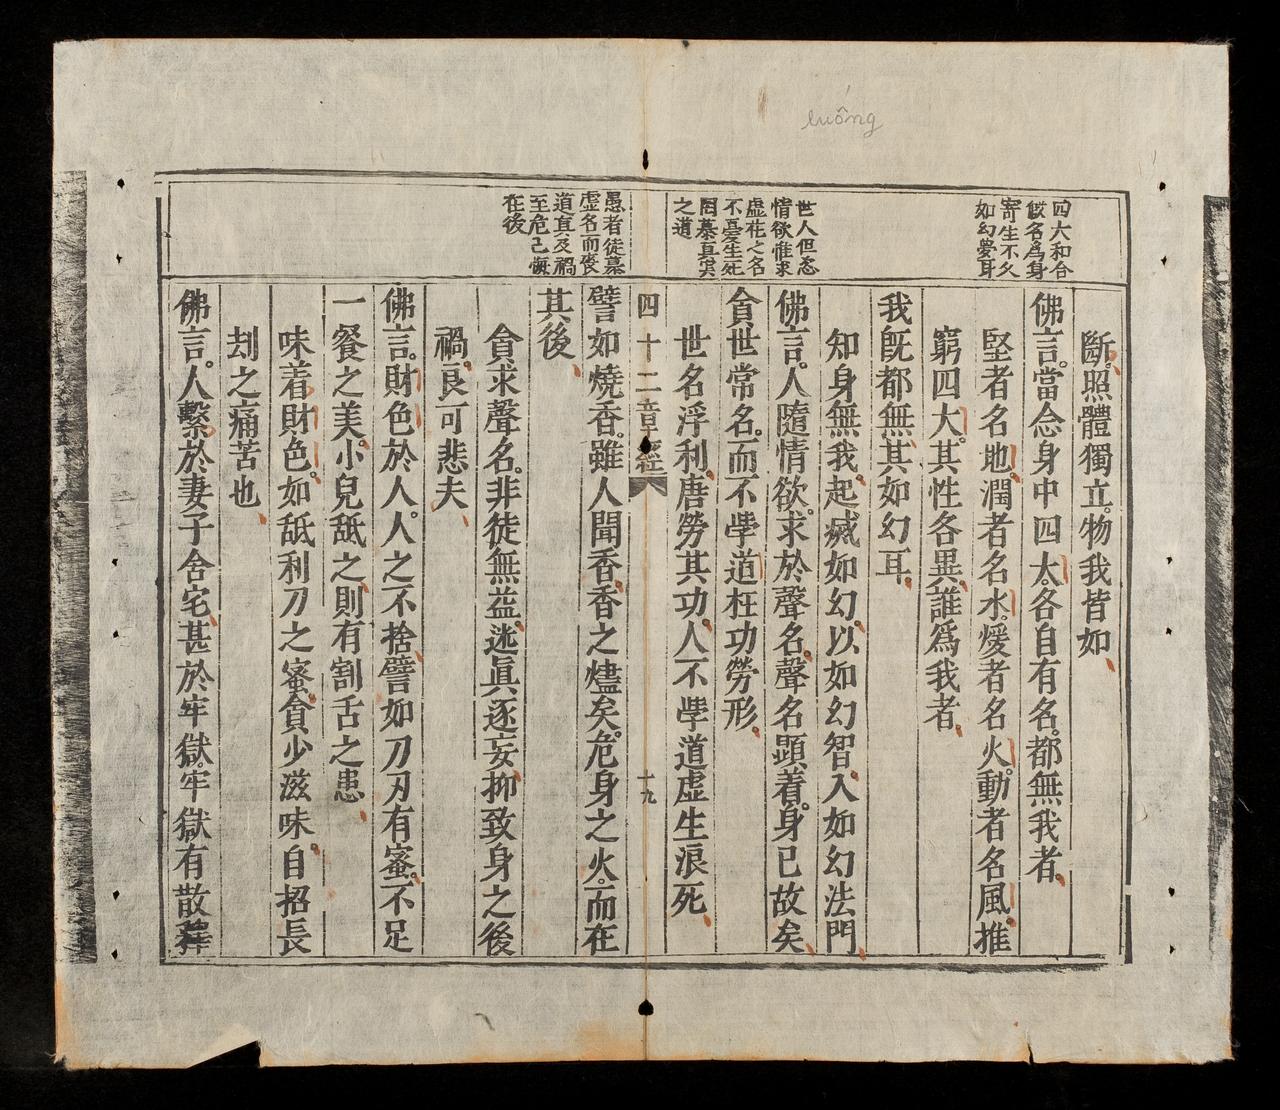 luống
四大和合
假名爲身
寄生不久
如幻夢耳
世人但恣
情欲惟求
虛花之名
不憂生死
罔慕真実
之道
斷。照體獨立。物我皆如
佛言。當念身中四大。各自有名。都無我者。
堅者名地。潤者名水。煖者名火。動者名風。推
窮四大。其性各異。誰爲我者。
我既都無。其如幻耳。
知身無我。起滅如幻。以如幻智。入如幻法門
佛言。人隨情欲。求於聲名。聲名顯着。身已故矣
貪世常名。而不學道。枉功勞形。
世名浮利。唐勞其功。人不學道。虛生浪死
四十二章經
十九
愚者徒慕
虛名而喪
道真及禍
至危己悔
在後
譬如燒香。雖人聞香。香之燼矣。危身之火。而在
其後
貪求聲名。非徒無益。迷眞逐妄。抑致身之後
禍。良可悲夫
佛言。財色於人。人之不捨。譬如刀刃有蜜。不足
一餐之美。小兒舐之。則有割舌之患
味着財色。如舐利刀之蜜。貪少滋味。自招長
劫之痛苦也
佛言。人繫於妻子舍宅。甚於牢獄。牢獄有散釋